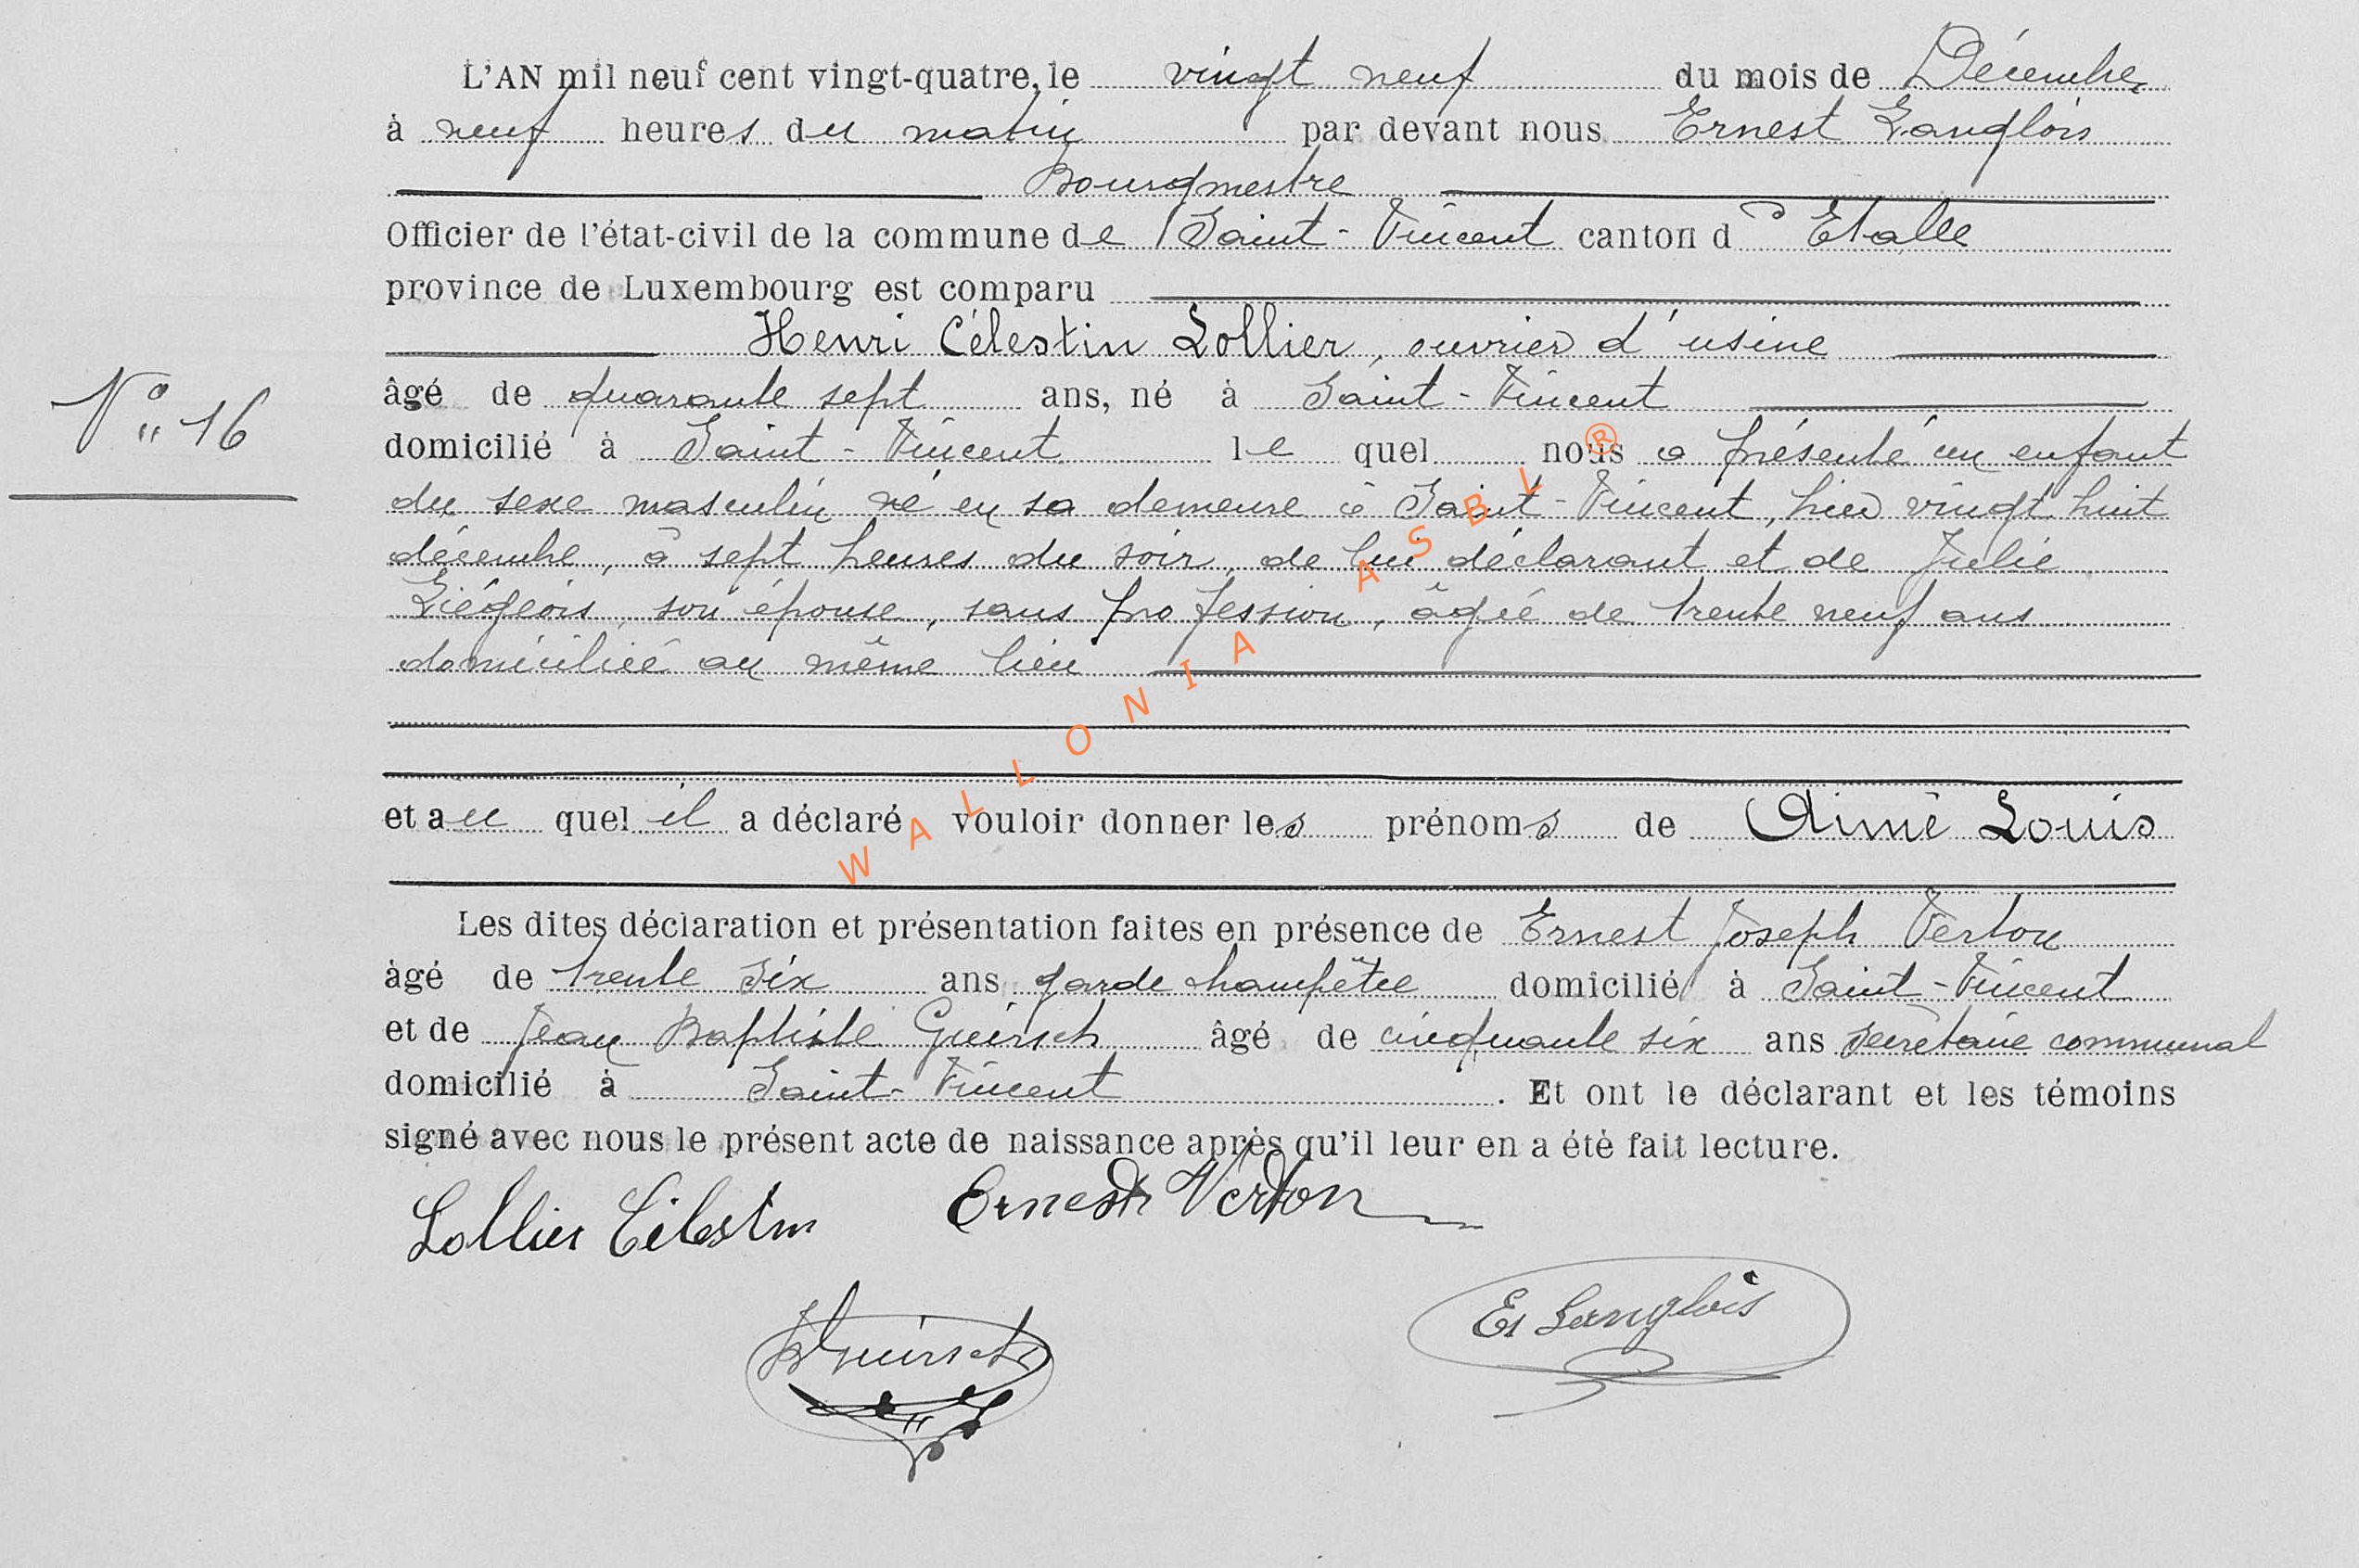 L'AN mil neuf cent vingt-quatre, le vingt neuf du mois de Décembre
à neuf heures du matin par devant nous Ernest Langlois
Bourgmestre
Officier de l'état-civil de la commune de Saint-Vincent canton d' Etalle
province de Luxembourg est comparu
Henri Célestin Lollier, ouvrier d'usine
âgé de quarante sept ans, né à Saint-Vincent
N° 16
domicilié à Saint-Vincent le quel nous a présenté un enfant
du sexe masculin né en sa demeure à Saint-Vincent, hier vingt huit
décembre, à sept heures du soir, de lui déclarant et de Julie
Liégeois, son épouse, sans profession, âgée de trente neuf ans
domiciliée au même lieu
et au quel il a déclaré vouloir donner les prénoms de Aimé Louis
Les dites déclaration et présentation faites en présence de Ernest Joseph Verton
âgé de trente six ans garde champêtre domicilié à Saint-Vincent
et de Jean Baptiste Guirsch âgé de cinquante six ans secrétaire communal
domicilié à Saint-Vincent. Et ont le déclarant et les témoins
signé avec nous le présent acte de naissance après qu'il leur en a été fait lecture.
Lollier Célestin Ernest Verton
JBGuirsch Et Langlois
WALLONIA ASBL ®